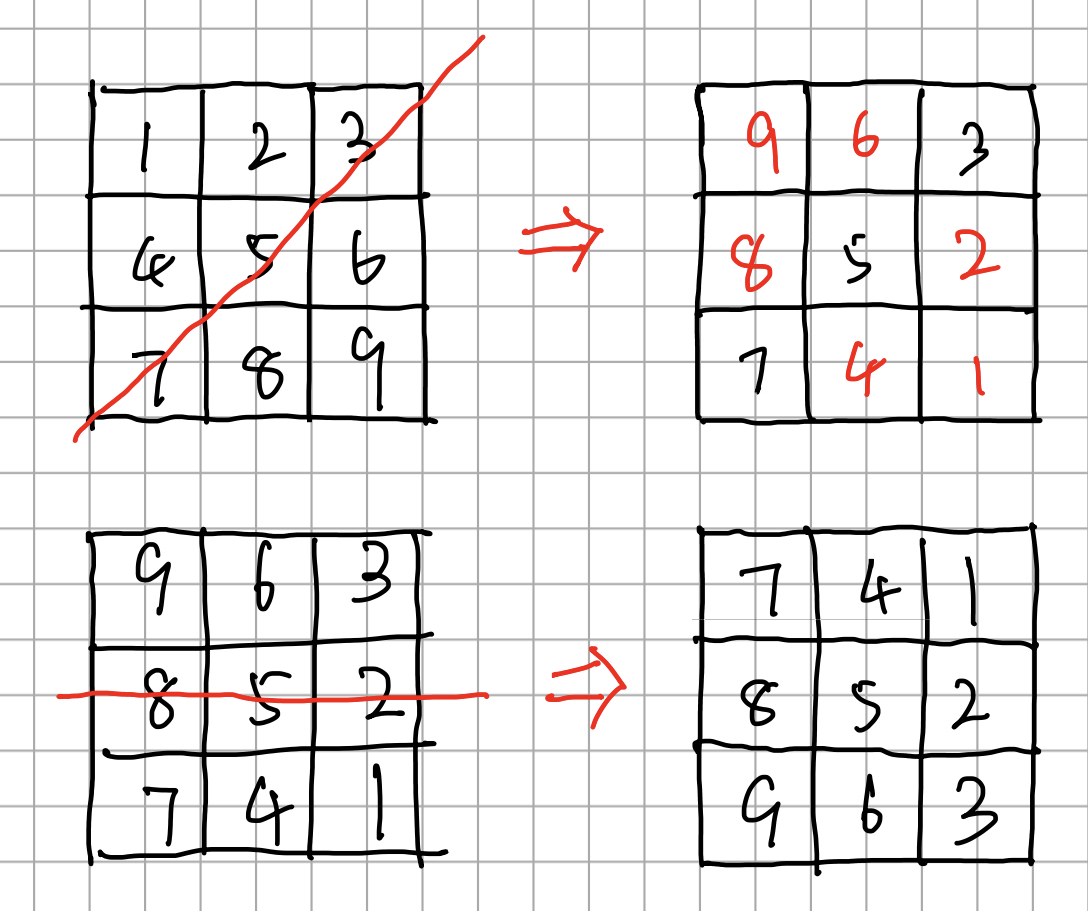 1 2 3
4 5 6
7 8 9
9 6 3
8 5 2
7 4 1
9 6 3
8 5 2
7 4 1
7 4 1
8 5 2
9 6 3